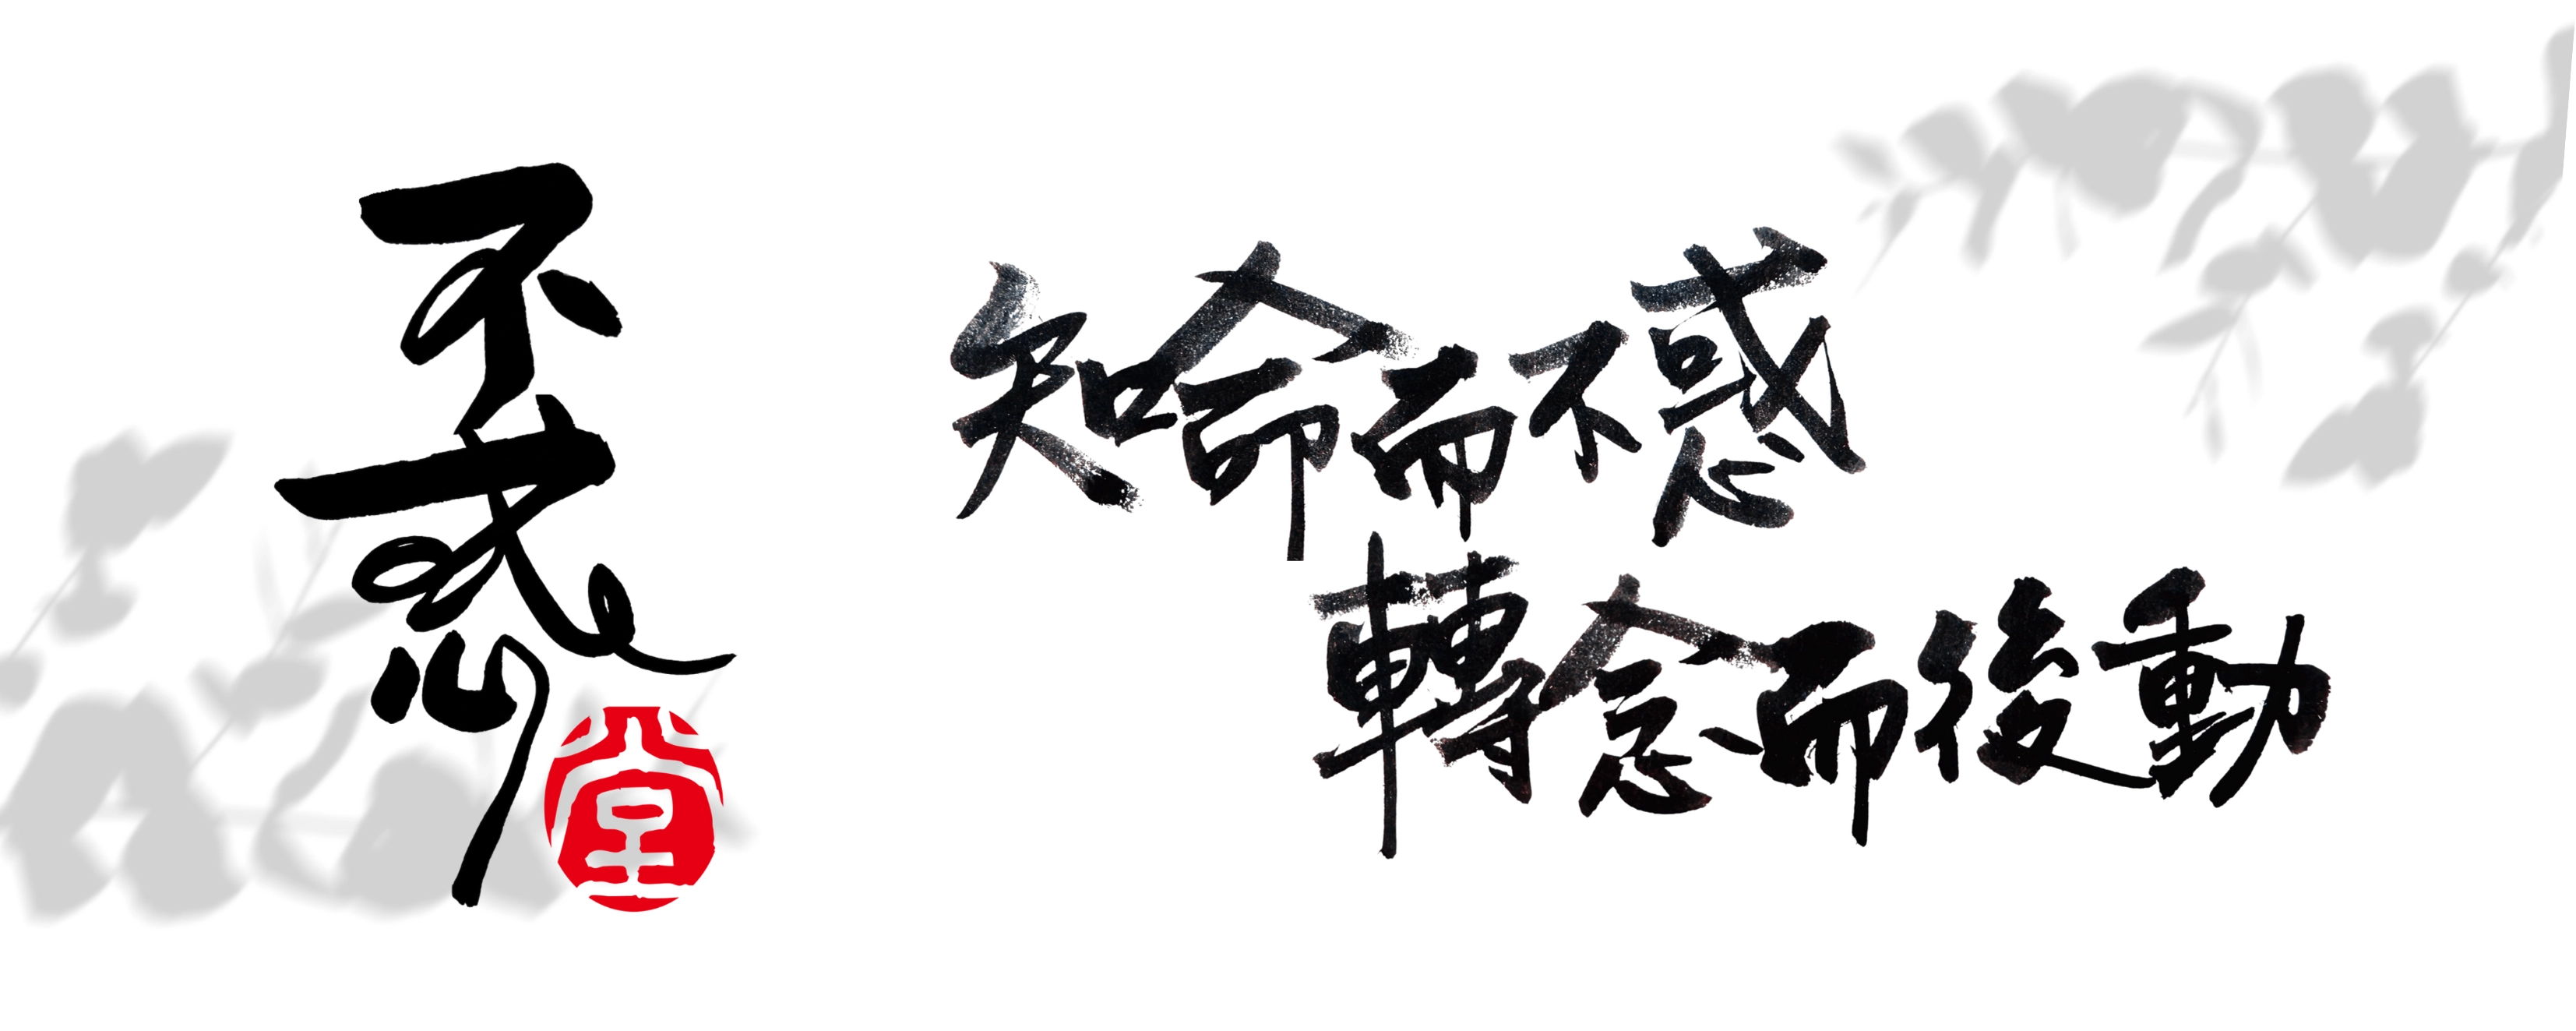 不惑
堂
知命而不惑
轉念而後動